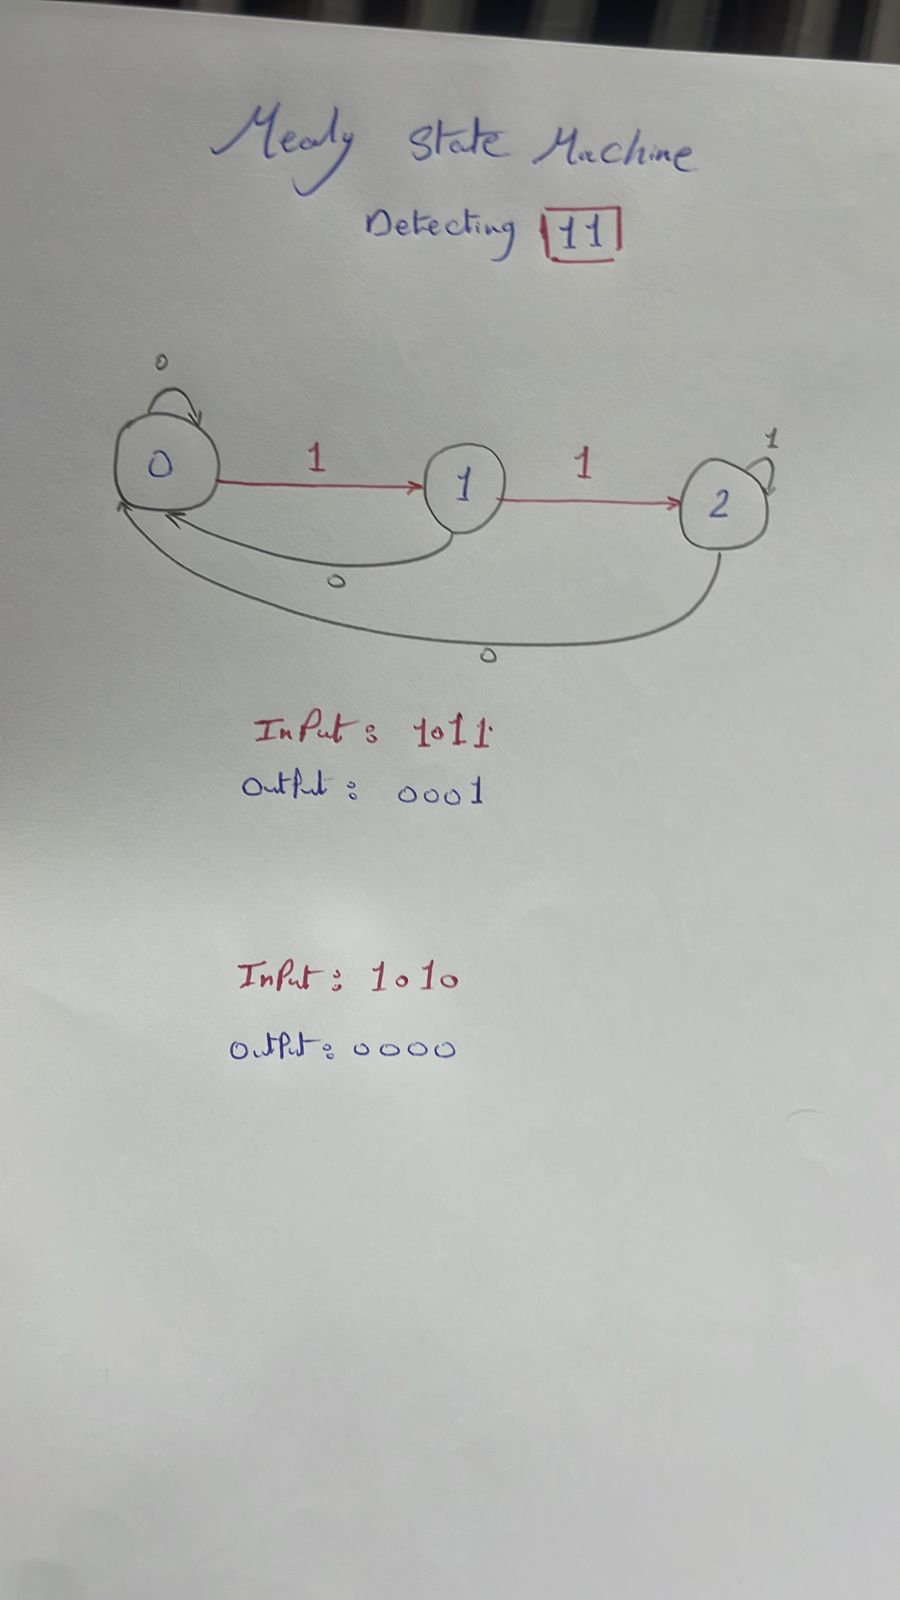 Mealy State Machine
Detecting 11
0
0 1 1 1 1 2
0
0
Input : 1011
Output : 0001
Input : 1010
Output : 0000